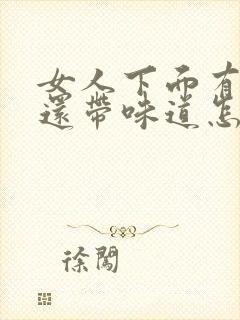 女人下面有
還帶味道怎
徐闖